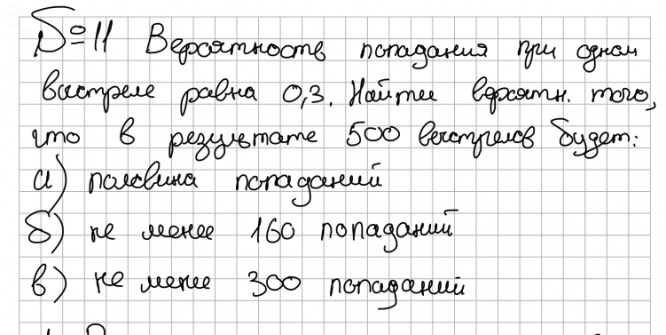 №11 Вероятность попадания при одном
выстреле равна 0,3. Найти вероятн. того,
что в результате 500 выстрелов будет:
а) половина попаданий
б) не менее 160 попаданий
в) не менее 300 попаданий